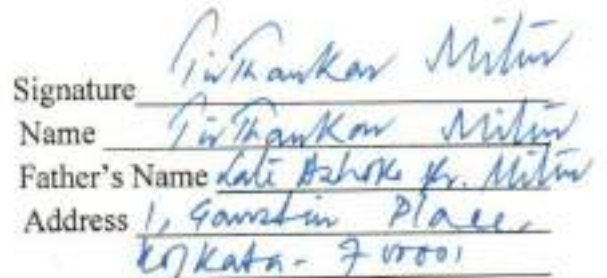 Signature Tirthankar Mitra
Name Tirthankar Mitra
Father's Name Late Ashoke Kr. Mitra
Address 1, Garstin Place,
Kolkata - 700001